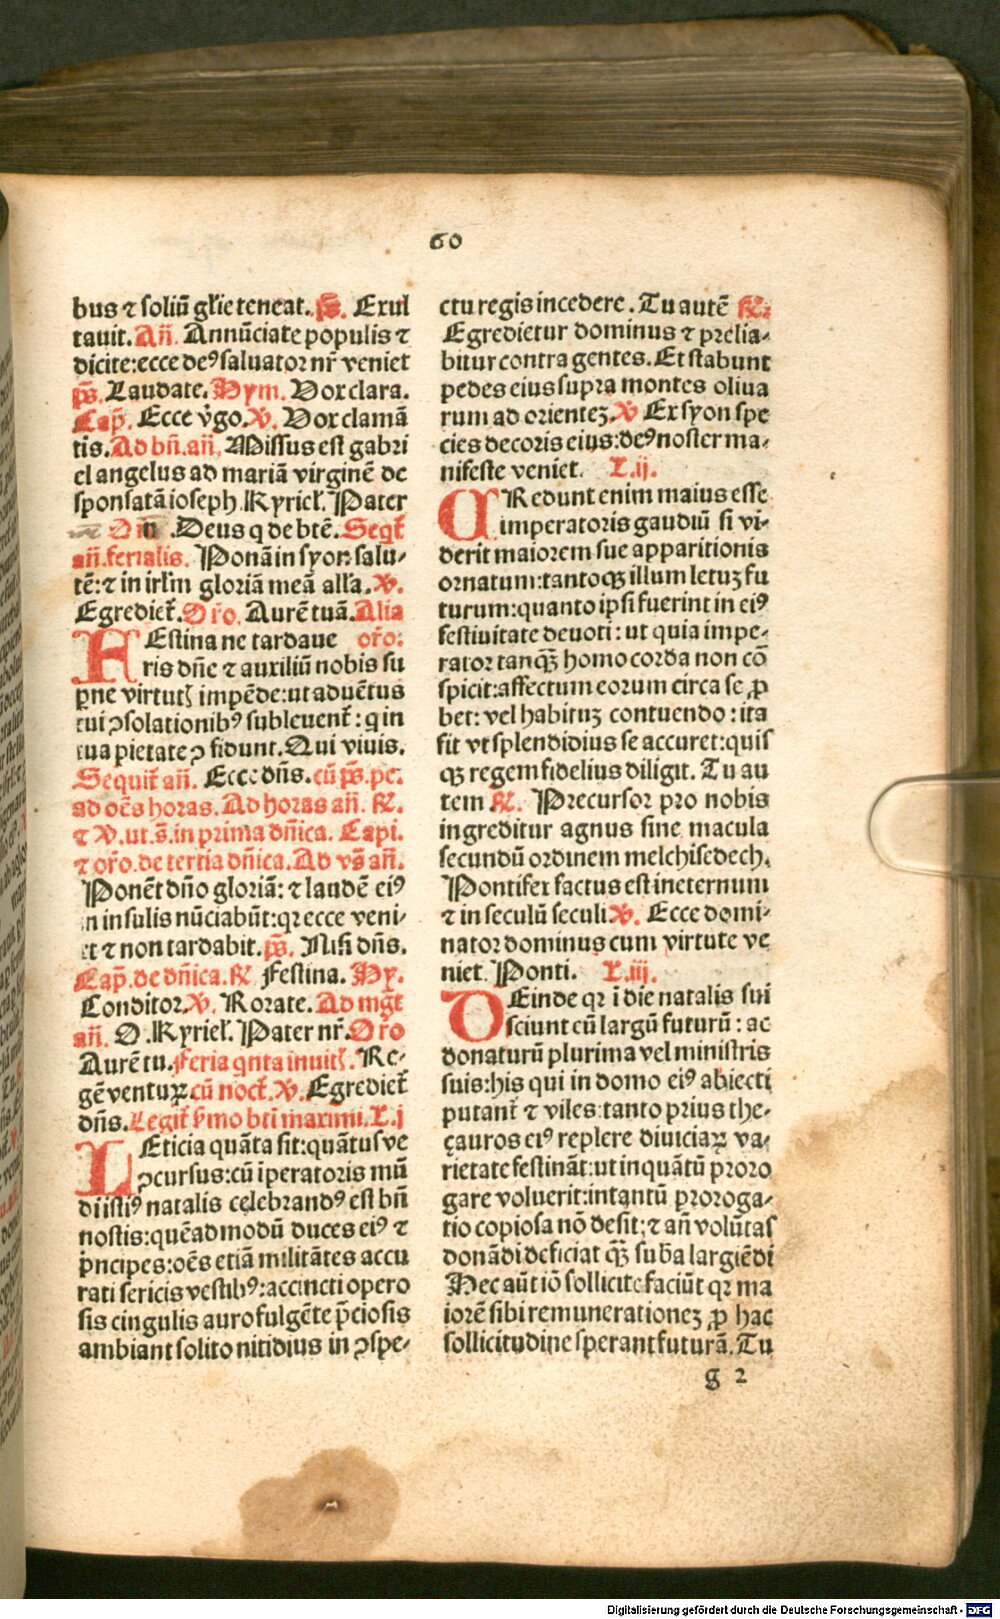 60
bus ⁊ soliū gl'ie teneat. ps̄. Exul
tauit. Añ. Annūciate populis ⁊
dicite: ecce deꝰ saluator nr̄ veniet
ps̄. Laudate. Hym. Vox clara.
Cap̄. Ecce v̓go. V. Vox clamā
tis. Ad bn̄. añ. Missus est gabri
el angelus ad mariā virginē de
sponsatā ioseph. Kyriel'. Pater
Deus q de btē. Seqt̄
añ. ferialis. Ponā in syon salu-
tē: ⁊ in irl'm gloriā meā all'a. V.
Egrediet̄. Or̄o. Aurē tuā. Alia
FEstina ne tardaue or̄o:
ris dn̄e ⁊ auxiliū nobis su
ꝑne virtutꝭ impēde: ut aduētus
tui ꝯsolationibꝰ subleuent̄: q in
tua pietate ꝯfidunt. Qui viuis.
Sequit̄ añ. Ecce dn̄s. cū ps̄. pe.
ad oēs horas. Ad horas añ. ℟.
⁊ V. ut s̄. in prima dn̄ica. Capi.
⁊ or̄o. de tertia dn̄ica. Ad vs̄ añ.
Ponēt dn̄o gloriā: ⁊ laudē eiꝰ
in insulis nūciabūt: qr ecce veni-
et ⁊ non tardabit. ps̄. Nisi dn̄s.
Cap̄. de dn̄ica. ℟. Festina. Hy.
Conditor. V. Rorate. Ad mgt̄
añ. O. Kyriel'. Pater nr̄. Or̄o
Aurē tu. Feria qnta inuitꝭ. Re-
gē venturꝝ cū noct̄. V. Egrediet̄
dn̄s. Legit̄ s̓mo bt̄i maximi. L. j
LEticia quāta sit: quātus ve
ꝯcursus: cū īperatoris mū
di istiꝰ natalis celebrandꝰ est bn̄
nostis: quēadmodū duces eiꝰ ⁊
p̓ncipes: oēs etiā militātes accu
rati sericis vestibꝰ: accincti opero
sis cingulis auro fulgēte p̄ciosis
ambiant solito nitidius in ꝯspe-
ctu regis incedere. Tu autē ℟:
Egredietur dominus ⁊ prelia-
bitur contra gentes. Et stabunt
pedes eius supra montes oliua
rum ad orienteꝫ. V Ex syon spe
cies decoris eius: deꝰ noster ma-
nifeste veniet. L. ij.
CRedunt enim maius esse
imperatoris gaudiū si vi-
derit maiorem sue apparitionis
ornatum: tantoqꝫ illum letuꝫ fu
turum: quanto ipsi fuerint in eiꝰ
festiuitate deuoti: ut quia impe-
rator tanqꝫ̄ homo corda non cō
spicit: affectum eorum circa se ꝓ
bet: vel habituꝫ contuendo: ita
fit vt splendidius se accuret: quis
qꝫ regem fidelius diligit. Tu au
tem ℟. Precursor pro nobis
ingreditur agnus sine macula
secundū ordinem melchisedech.
Pontifex factus est ineternum
⁊ in seculū seculi. V. Ecce domi-
nator dominus cum virtute ve
niet. Ponti. L. iij.
DEinde qr ī die natalis sui
sciunt eū largū futurū: ac
donaturū plurima vel ministris
suis: his qui in domo eiꝰ abiecti
putant̄ ⁊ viles: tanto prius the-
çauros eiꝰ replere diuiciaꝝ va-
rietate festināt: ut inquātū proro
gare voluerit: intantū ꝓroga-
tio copiosa nō desit: ⁊ añ volūtas
donādi deficiat qꝫ̄ sub̄a largiēdi
Hec aūt iō sollicite faciūt qr ma
iorē sibi remunerationeꝫ ꝓ hac
sollicitudine sperant futurā. Tu
g 2
Digitalisierung gefördert durch die Deutsche Forschungsgemeinschaft - DFG